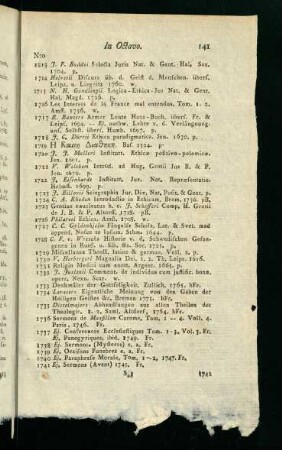 in Octavo. 141
Nro
1713 J. F. Buddei Selecta Juris Nat. & Gent. Hal. Sax.
1704. p.
1714 Helvetii Discurs üb. d. Geist d. Menschen. übers.
Leipz. u. Liegnitz 1760. w.
1715 N. H. Gundlingii Logica-Ethica-Jus Nat. & Gent.
Hal. Magd. 1726. p.
1716 Les Interets de la France mal entendus. Tom. 1. 2.
Amst. 1756. w.
1717 E. Baueri Armer Leute Haus-Buch. übers. Fr. &
Leipz. 1694. — Ej. nothw. Lehre v. d. Verläugnung
auf. Selbst. übers. Humb. 1697. p.
1718 J. C. Dürrii Ethica paradigmatica. Jen. 1670. p.
1719 H Καινη Διαθηκη. Bas. 1524. p.
1720 J. J. Mulleri Institut. Ethicæ positivo-polemicæ.
Jen. 1691. p.
1721 V. Welchem Introd. ad Hug. Grotii Jus B. & P.
Jen. 1676. p.
1722 J. Eisenharde Institut. Jur. Nat. Representatio.
Helmst. 1699. p.
1723 J. Billovii Sciographia Jur. Div. Nat. Posit. & Gent. p.
1724 C. A. Rhodae Introductio in Ethicam, Brem. 1730. pf.
1725 Grotius enucleatus h. e. J. Schefferi Comp. H. Grotii
de J. B. & P. Altorff. 1718. pff.
1726 Philareti Ethica. Amst. 1696. w.
1727 C. C. Gyldenhjelm Fragmile Schola, Lat. & Svet. mod
oppend. Notas in Latian. Schm. 1694. p.
1728 C. F. v. Wreech Historie v. d. Schwedischen Gefan-
genen in Russl. u. Sib. 8te. Soc. 1725. p.
1729 Miscellanea Theol. latina & german. in Convol. 29. w.
1730 V. Herbergeri Magnalia Dei. 1. 2. Th. Leipz. 1616.
1731 Religio Medici cum annot. Argent. 1665. p.
1732 F. Justiniani Comment. de individua cum jusific. bono.
oper. nexu. Scar. w.
1733 Denkmäler der Gottseligkeit. Zullich. 1764. hfr.
1734 Lavaters Eigentliche Meinung von den Gaben der
Heiligen Geistes &c. Bremen 1771. hfr.
1735 Dietelmajers Abhandlungen aus allen Theilen der
Theologie. 1. 2. Saml. Altdorf. 1764. hfr.
1736 Sermons de Massillon Careme, Tom. 1 — 4. Voll. 4.
Paris. 1746. Fr.
1737 Ej. Conferences Ecclesiastiques Tom. 1 - 3. Vol. 3. Fr.
1738 Ej. Panegyriques, ibid. 1749. Fr.
1738 Ej. Sermons. (Mysteres) e. a. Fr,
1739 Ej. Oraisons Funebres e. a. Fr.
1740 Ej. Paraphrase Morale, Tom. 1 — 2, 1747. Fr.
1741 Ej. Sermons (Avent) 1745. Fr.
1742